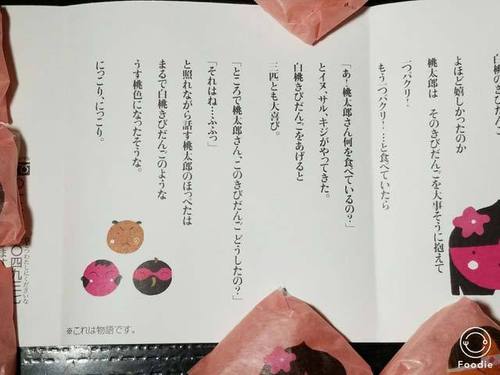 白桃のきびだん
よほど嬉しかったのか
桃太郎は そのきびだんごを大事そうに抱えて
一つパクリ！
もう一つパクリ！…と食べていたら
「あ！桃太郎さん何を食べているの？」
とイヌ、サル、キジがやってきた。
白桃きびだんごをあげると
三匹とも大喜び。
「ところで桃太郎さん、このきびだんごどうしたの？」
「それはね…ふふっ」
と照れながら話す桃太郎のほっぺたは
まるで白桃きびだんごのような
うす桃色になったそうな。
にっこり、にっこり。
※これは物語です。
Foodie